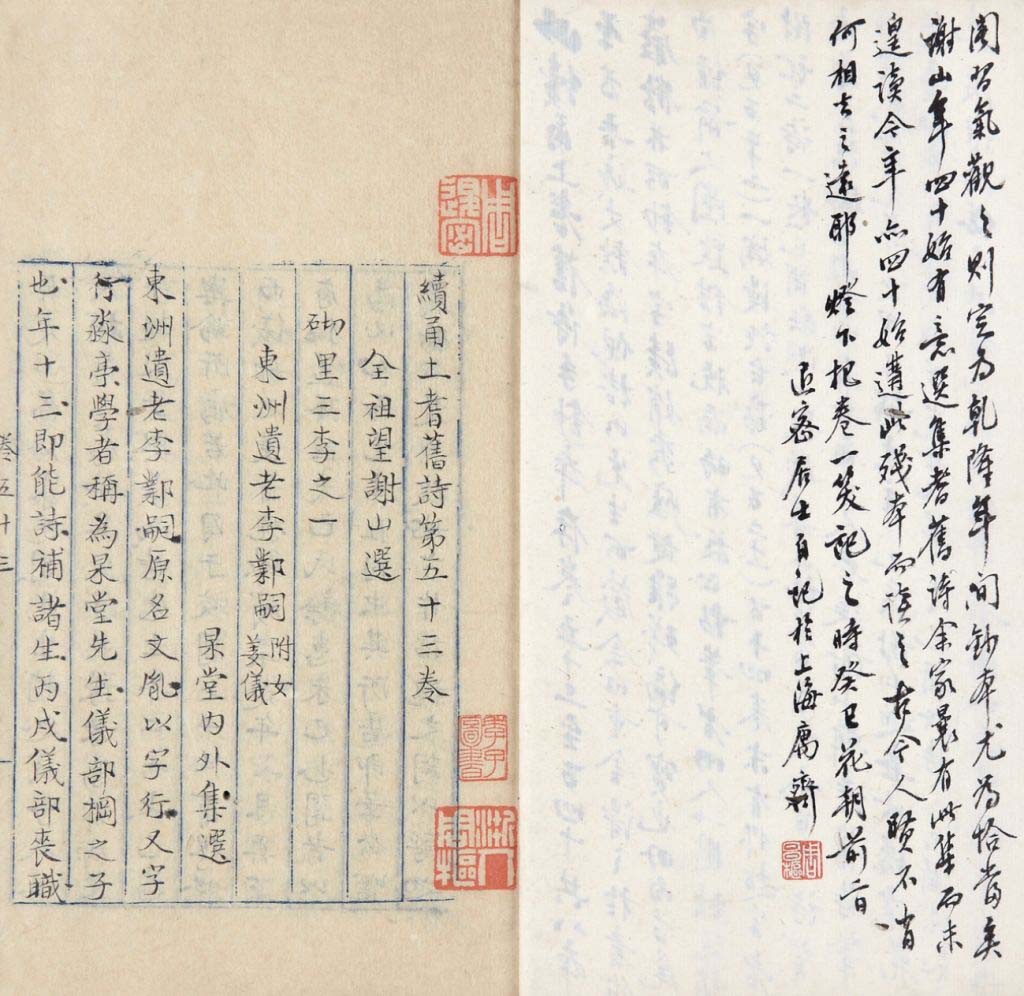 阁習氣觀之則定為乾隆年間鈔本尤為恰當矣
謝山年四十始有意選集耆舊詩余家曩有此集而未
遑讀今年亦四十始遘此殘本而讀之古今人賢不肖
何相去之遠耶燈下把卷一笑記之時癸巳花朝前一日
退密居士自記於上海庽齋
續甬上耆舊詩第五十三卷
全祖望謝山選
砌里三李之一
東洲遺老李鄴嗣 附女姜儀 杲堂內外集選
東洲遺老李鄴嗣原名文胤以字行又字
行淼亭學者稱為杲堂先生儀部棡之子
也年十三即能詩補諸生丙戌儀部喪職
卷五十三